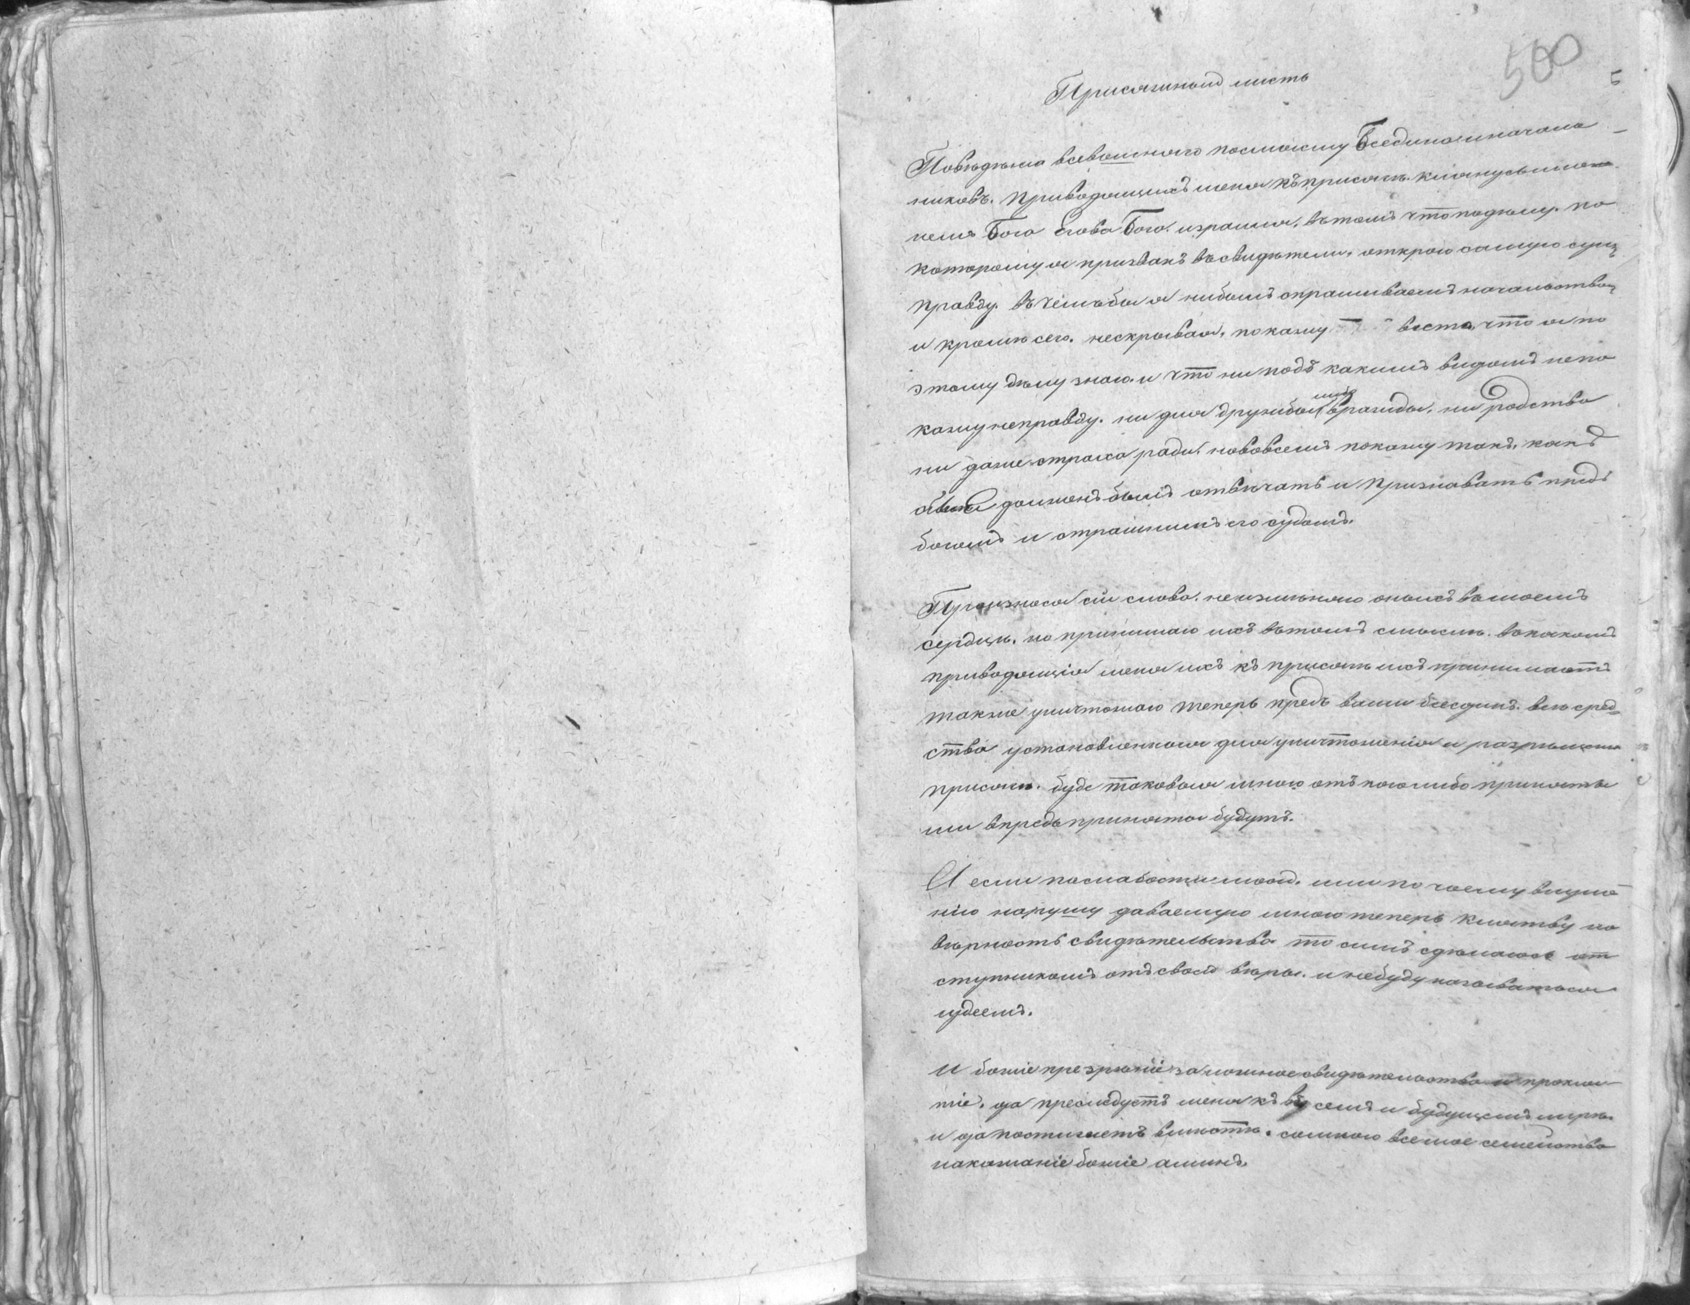 500
Присяжный листъ
Повѣдѣнію всевышняго посмыслу Бседина и начало
никовъ. приводящихъ меня къ присягѣ. клянусь имен
немъ Бога слова Бога израиля, въ томъ что подѣлу. по
которому я призванъ въ свидѣтели, открою самую сущ
правду. въ чемъ бы я ни былъ спрашиваемъ начальством
и кромѣ сего. нескрывая, покажу все то, что я по
этому дѣлу знаю и что ни подъ какимъ видомъ непо
кажу неправду. ни для дружбы, ниже вражды, ни родства
ни даже страха ради. но вовсемъ покажу такъ, какъ
бы я долженъ былъ отвѣчать и признавать предъ
богомъ и страшнымъ его судомъ.
Произнося сіи слова. не измѣняю оныхъ въ моемъ
сердцѣ. но принимаю ихъ въ томъ смыслѣ. въ какомъ
приводящія меня ихъ къ присягѣ ихъ принимаютъ
также уничтожаю теперь предъ вами бесдинъ. всѣ сред
ства установленныя для уничтоженія и разрѣшенія
присяги. буде таковыя мною отъ кого либо приняты
или впредь приняты будутъ.
И если по слабости моей. или по чьему внуше
нію нарушу даваемую мною теперь клятву на
вѣрность свидѣтельства то симъ сдѣлаюсь от
ступникомъ отъ своей вѣры. и небуду называться
іудеемъ.
И божіе презрѣніе за ложное свидѣтельство и прокля
тіе. да преслѣдуетъ меня въ семъ и будущемъ мирѣ.
и да постигнетъ вмѣстѣ. со мною все мое семейство
наказаніе божіе аминь.